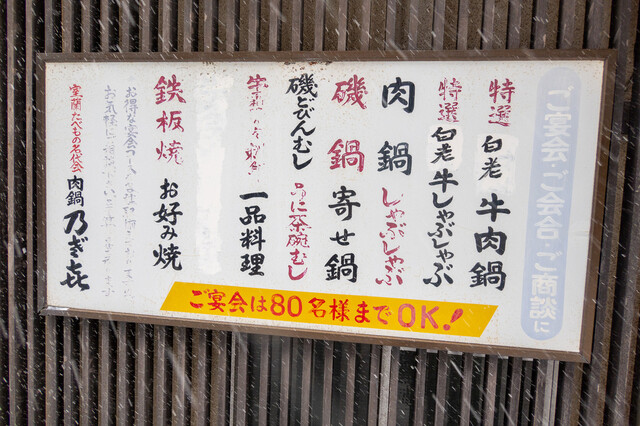 ご宴会・ご会合・ご商談に
特選 白老 牛肉鍋
特選 白老 牛しゃぶしゃぶ
肉鍋 しゃぶしゃぶ
磯鍋 寄せ鍋
磯どびんむし 茶碗むし
一品料理
鉄板焼 お好み焼
お得な宴会コース
お気軽に
室蘭たべもの名代会 肉鍋 乃ぎ㐂
ご宴会は80名様までOK!